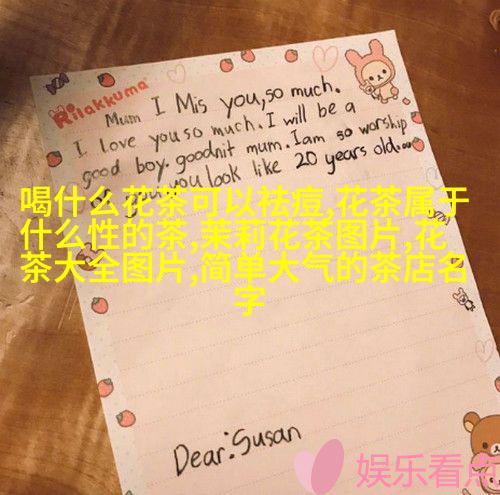 Rilakkuma
Mum I Mis you,so much.
I love you so much. I will be a
good boy. goodnit mum. Iam so worship
you look like 20 years old.
喝什么花茶可以祛痘,花茶属于
什么性的茶,茉莉花茶图片,花
茶大全图片,简单大气的茶店名
字
Dear:Susan
娱乐看点